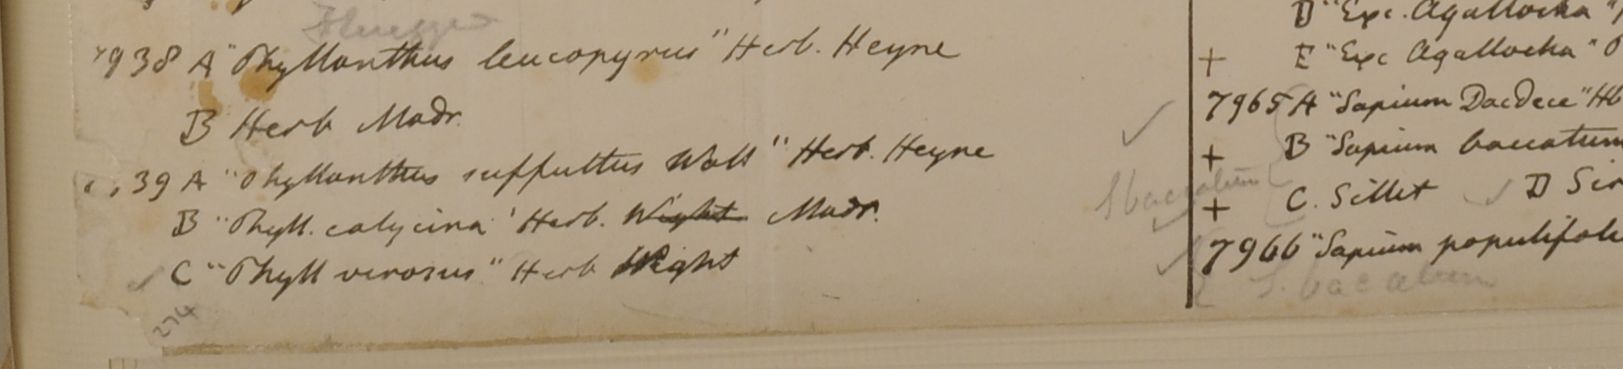 Flueggea
7938 A "Phyllanthus leucopyrus" Herb. Heyne
B Herb Madr.
39 A "Phyllanthus suffultus Wall" Herb. Heyne
B "Phyll. calycina' Herb. Wight Madr.
C "Phyll virosus" Herb Wight
274
D "Exc. Agallocha"
+ E "Exc Agallocha"
7965 A "Sapium Dacdece" Hb
+ B "Sapium baccatum
S baccatum
+ C. Sillet D
7966 "Sapium populifoli
S. baccatum